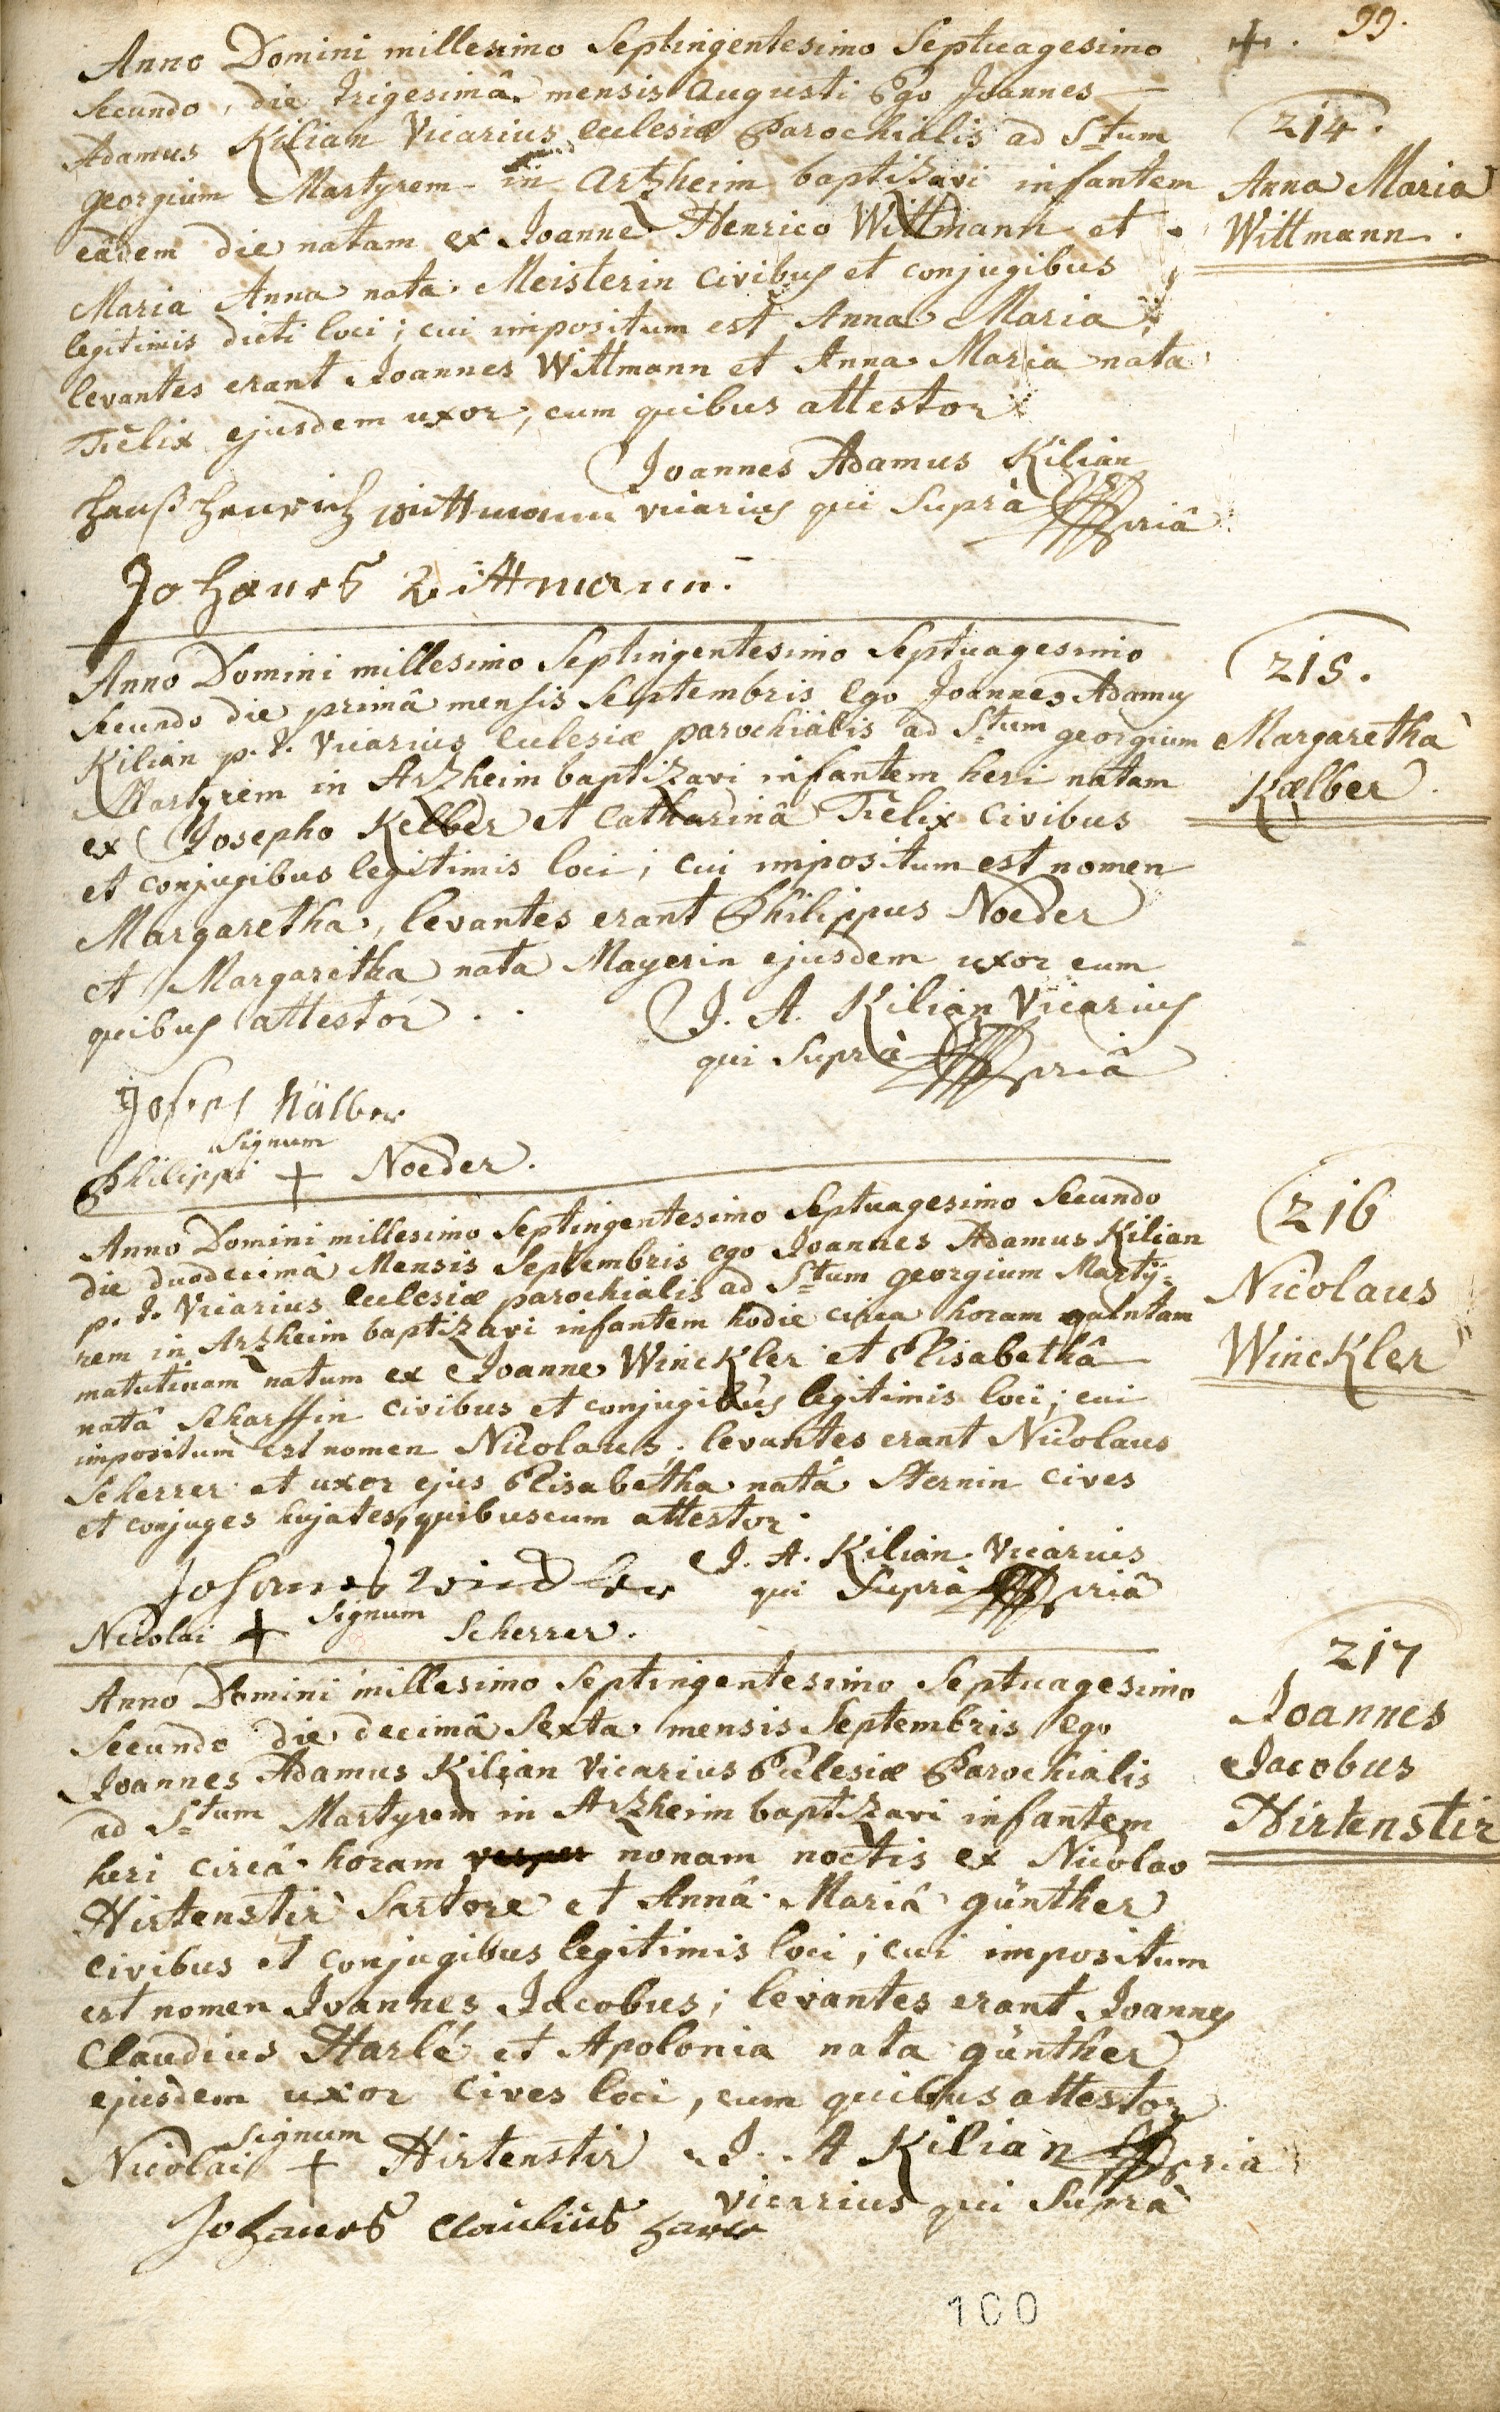 99.
Anno Domini millesimo Septingentesimo Septuagesimo
secundo, die trigesimâ mensis Augusti Ego Joannes
Adamus Kilian Vicarius Eclesiæ Parochialis ad Stum
georgium Martyrem in Artzheim baptizavi infantem
eâdem die natam ex Joanne Henrico Wittmann et
Maria Anna nata Meisterin civibus et conjugibus
legitimis dicti loci; cui impositum est Anna Maria;
levantes erant Joannes Wittmann et Anna Maria nata
Trelix ejusdem uxor, cum quibus attestor
Joannes Adamus Kilian
vicarius qui Suprà
priâ
Hanß Henrich wittmann
Johanes wittmann.
214.
Anna Maria
Wittmann.
Anno Domini millesimo Septingentesimo Septuagesimo
Secundo die primâ mensis Septembris Ego Joannes Adamus
Kilian p. t. Vicarius Eclesiæ parochialis ad Stum georgium
Martyrem in Arzheim baptizavi infantem heri natam
ex Josepho Kelber et Catharinâ Trelix civibus
et conjugibus legitimis loci; cui impositum est nomen
Margaretha, levantes erant Philippus Noeder
et Margaretha nata Mayerin ejusdem uxor cum
quibus attestor . .
J. A. Kilian Vicarius
qui Suprà priâ
Josep Kälber
Signum
Philippi + Noeder.
215.
Margaretha
Kælber.
Anno Domini millesimo Septingentesimo Septuagesimo Secundo
die duodecimâ Mensis Septembris ego Joannes Adamus Kilian
p. t. Vicarius Eclesiæ parochialis ad Stum georgium Marty=
rem in Arzheim baptizavi infantem hodie circa horam quintam
matutinam natum ex Joanne Winckler et Elisabethâ
natâ Scharffin civibus et conjugibus legitimis loci; cui
impositum est nomen Nicolaus. levantes erant Nicolaus
Scherrer et uxor ejus Elisabetha nata Sternin cives
et conjuges hujates, quibuscum attestor.
J. A. Kilian Vicarius
qui Suprà priâ
Johanes winckler
Signum
Nicolai + Scherrer.
216
Nicolaus
Winckler
Anno Domini millesimo Septingentesimo Septuagesimo
Secundo die decimâ Sexta mensis Septembris Ego
Joannes Adamus Kilian Vicarius Eclesiæ Parochialis
ad Stum Martyrem in Arzheim baptizavi infantem
heri circâ horam vesper nonam noctis ex Nicolao
Hirtenstir Sartore et Annâ Mariâ günther
civibus et conjugibus legitimis loci; cui impositum
est nomen Joannes Jacobus; levantes erant Joannes
Claudius Harlé et Apolonia nata günther
ejusdem uxor cives loci, cum quibus attestor
Signum
Nicolai + Hirtenstir
J. A Kilian pria
vicarius qui Suprà
Johanes Claudius Harle
217
Joannes
Jacobus
Hirtenstir
100